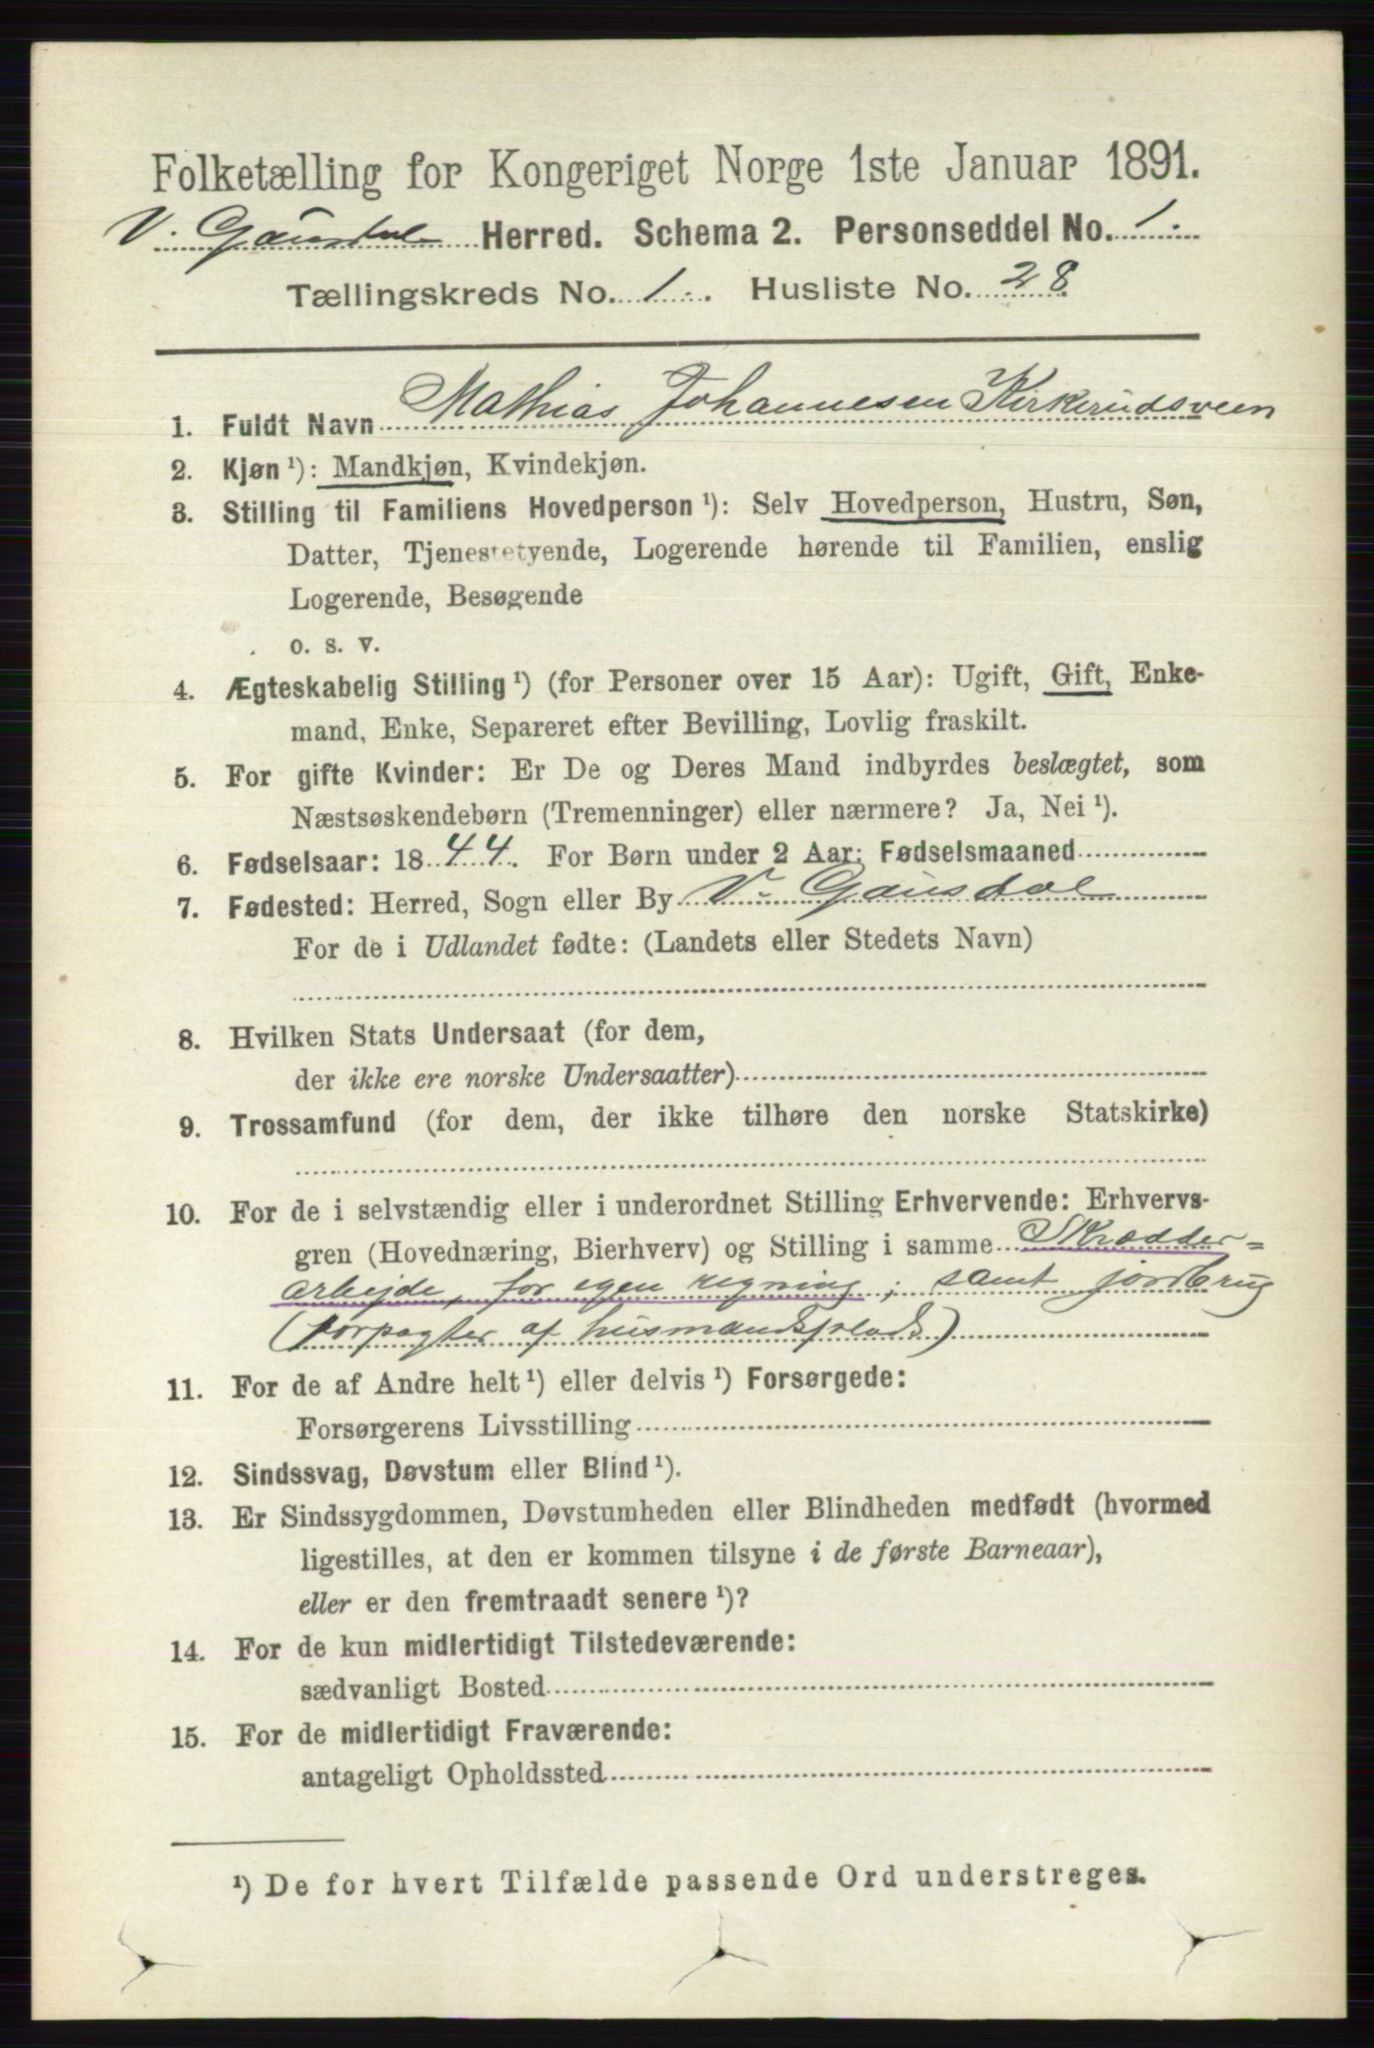 Folketælling for Kongeriget Norge 1ste Januar 1891.
V. Gausdal Herred. Schema 2. Personseddel No. 1.
Tællingskreds No. 1. Husliste No. 28.
1. Fuldt Navn Mathias Johannesen Kirkerudsveen
2. Kjøn ¹): Mandkjøn, Kvindekjøn.
3. Stilling til Familiens Hovedperson ¹): Selv Hovedperson, Hustru, Søn,
Datter, Tjenestetyende, Logerende hørende til Familien, enslig
Logerende, Besøgende
o. s. v.
4. Ægteskabelig Stilling ¹) (for Personer over 15 Aar): Ugift, Gift, Enke-
mand, Enke, Separeret efter Bevilling, Lovlig fraskilt.
5. For gifte Kvinder: Er De og Deres Mand indbyrdes beslægtet, som
Næstsøskendebørn (Tremenninger) eller nærmere? Ja, Nei ¹).
6. Fødselsaar: 1844. For Børn under 2 Aar: Fødselsmaaned
7. Fødested: Herred, Sogn eller By V. Gausdal
For de i Udlandet fødte: (Landets eller Stedets Navn)
8. Hvilken Stats Undersaat (for dem,
der ikke ere norske Undersaatter)
9. Trossamfund (for dem, der ikke tilhøre den norske Statskirke)
10. For de i selvstændig eller i underordnet Stilling Erhvervende: Erhvervs-
gren (Hovednæring, Bierhverv) og Stilling i samme Skrædder=
arbejde, for egen regning; samt jordbrug
(forpagter af husmandsplads)
11. For de af Andre helt ¹) eller delvis ¹) Forsørgede:
Forsørgerens Livsstilling
12. Sindssvag, Døvstum eller Blind ¹).
13. Er Sindssygdommen, Døvstumheden eller Blindheden medfødt (hvormed
ligestilles, at den er kommen tilsyne i de første Barneaar),
eller er den fremtraadt senere ¹)?
14. For de kun midlertidigt Tilstedeværende:
sædvanligt Bosted
15. For de midlertidigt Fraværende:
antageligt Opholdssted
¹) De for hvert Tilfælde passende Ord understreges.